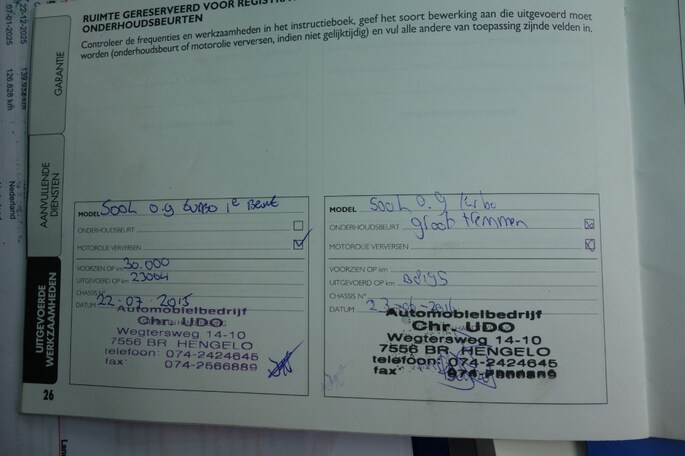 RUIMTE GERESERVEERD VOOR
ONDERHOUDSBEURTEN
Controleer de frequenties en werkzaamheden in het instructieboek, geef het soort bewerking aan die uitgevoerd moet
worden (onderhoudsbeurt of motorolie verversen, indien niet gelijktijdig) en vul alle andere van toepassing zijnde velden in.
GARANTIE
AANVULLENDE
DIENSTEN
UITGEVOERDE
WERKZAAMHEDEN
22-12-2025
07-01-2025 126.828 km
Nederland
MODEL 500L 0.9 turbo 1e Beurt
ONDERHOUDSBEURT
MOTOROLIE VERVERSEN
VOORZIEN OP km 30.000
UITGEVOERD OP km 23064
CHASSIS N°
DATUM 22-07-2015
Automobielbedrijf
Chr. UDO
Wegtersweg 14-10
7556 BR HENGELO
telefoon: 074-2424645
fax: 074-2566889
MODEL 500L 0.9 turbo
ONDERHOUDSBEURT groot
MOTOROLIE VERVERSEN
VOORZIEN OP km
UITGEVOERD OP km
CHASSIS N°
DATUM 23-06-2016
Automobielbedrijf
Chr. UDO
Wegtersweg 14-10
7556 BR HENGELO
telefoon: 074-2424645
fax
26